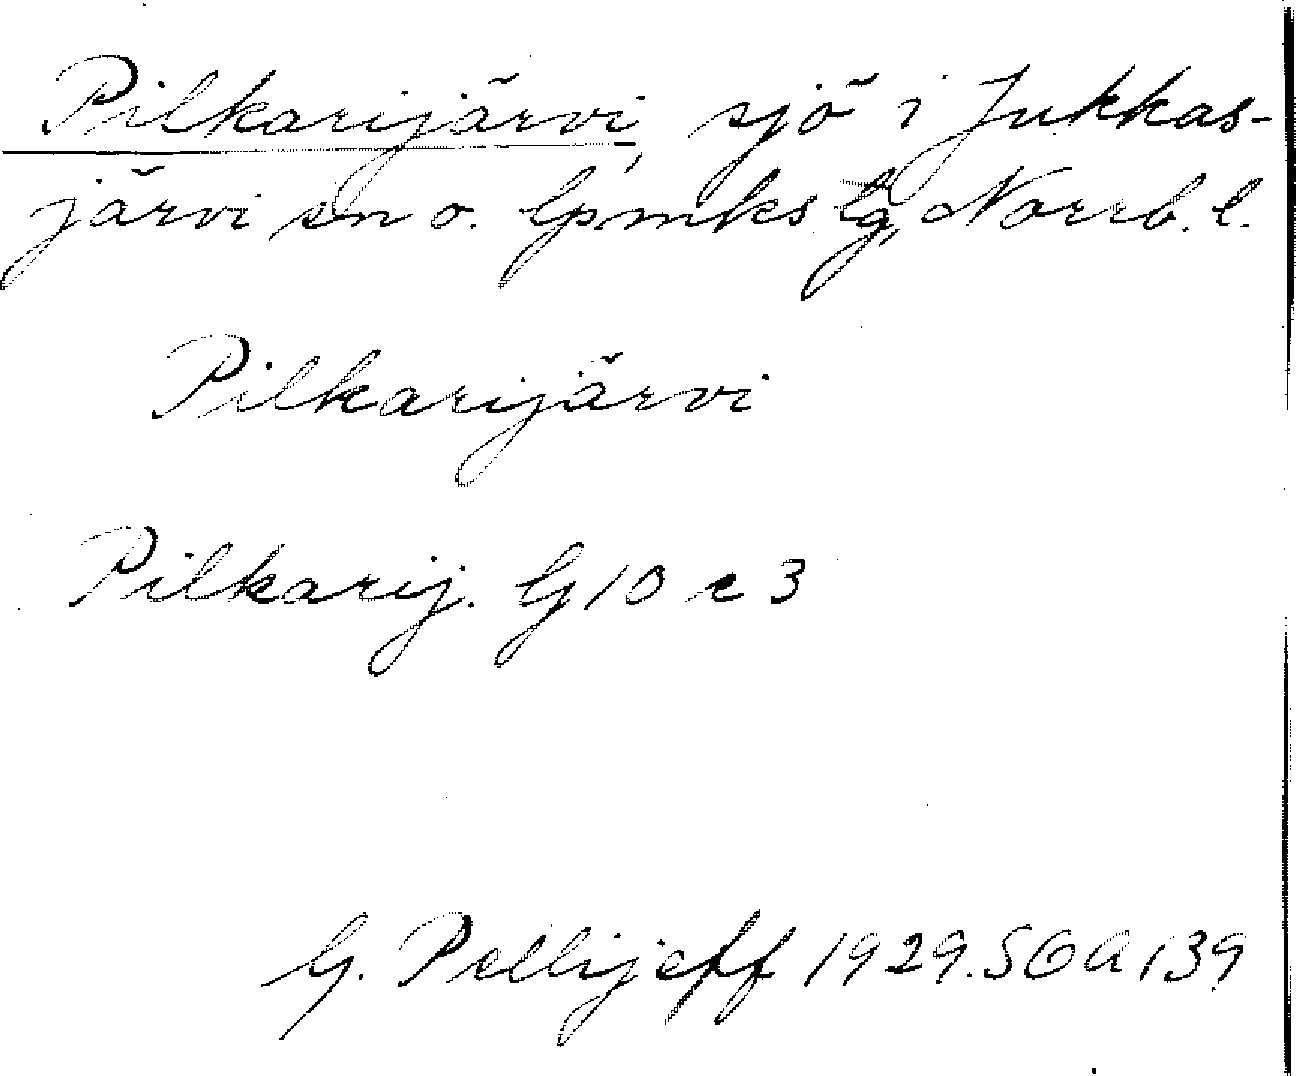 Pilkarijärvi, sjö i Jukkas-
järvi sn o. lpmks lg, Norrb. l.
Pilkarijärvi
Pilkarij. G 10 c 3
G. Pellijeff 1929. SOA 139